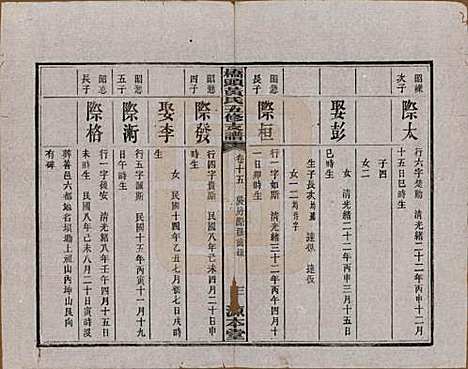 昭練
次子
際太
行六字楚勛 清光緒二十二年丙申十二月
十五日巳時生
子四
女二
娶彭
女 清光緒二十二年丙申三月十五
巳時生
生子長次 達 達
女一二
昭
長子
際桓
行一字如斯 清光緒三十二年丙午四月十
一日卯時生
橋頭黃氏五修支譜
卷十五
源本堂
昭
四子
際發
行四字貴斯 民國八年己未四月二十日申
時生
娶李
女 民國十四年乙丑七月初七日戌時
生
昭
五子
際衡
行五字誕斯 民國十五年丙寅十一月十九
日午時生
昭
長子
際格
行一字後安 清光緒八年壬午四月十五日
未時生 民國八年己未八月二十日寅時沒
葬善邑六都 壩塘上祖山內坤山艮向
有碑